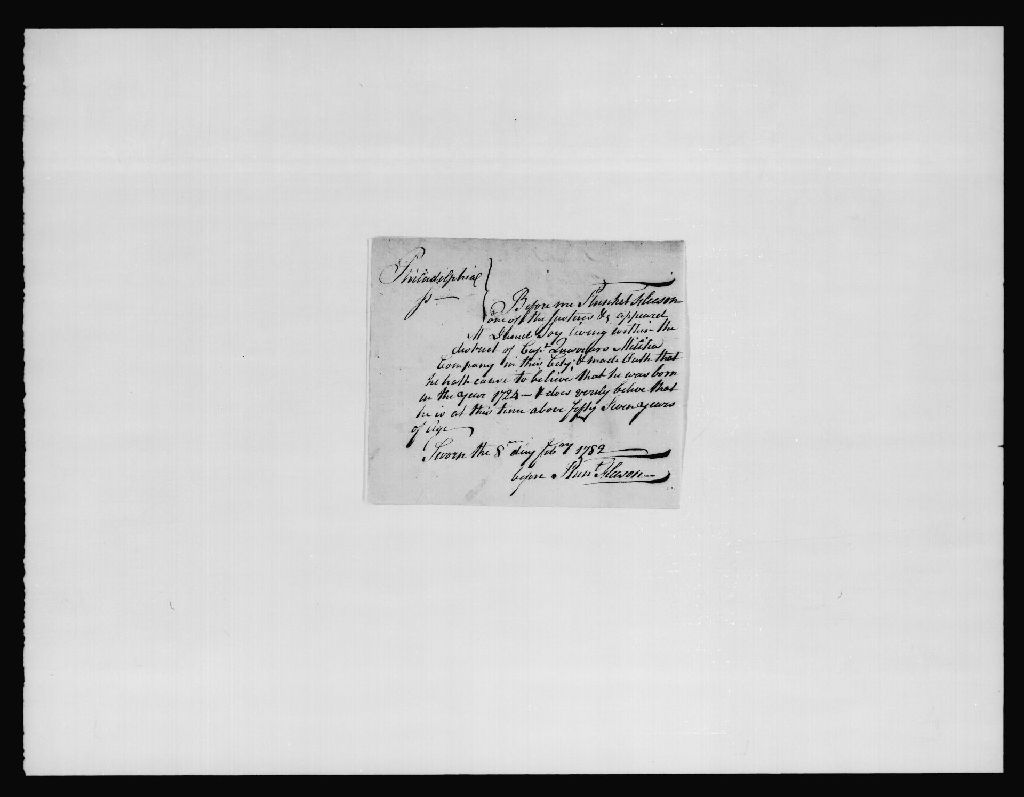 Philadelphia
ss
Before me Plunket Fleeson
one of the Justices &c appeared
Mr Israel Joy living within the
district of Capt. Militia
Company in this City, & made Oath that
he hath cause to believe that he was born
in the year 1724 – & does verily believe that
he is at this time above fifty Seven years
of Age
Sworn the 8th day Febry 1782
before Plunt Fleeson